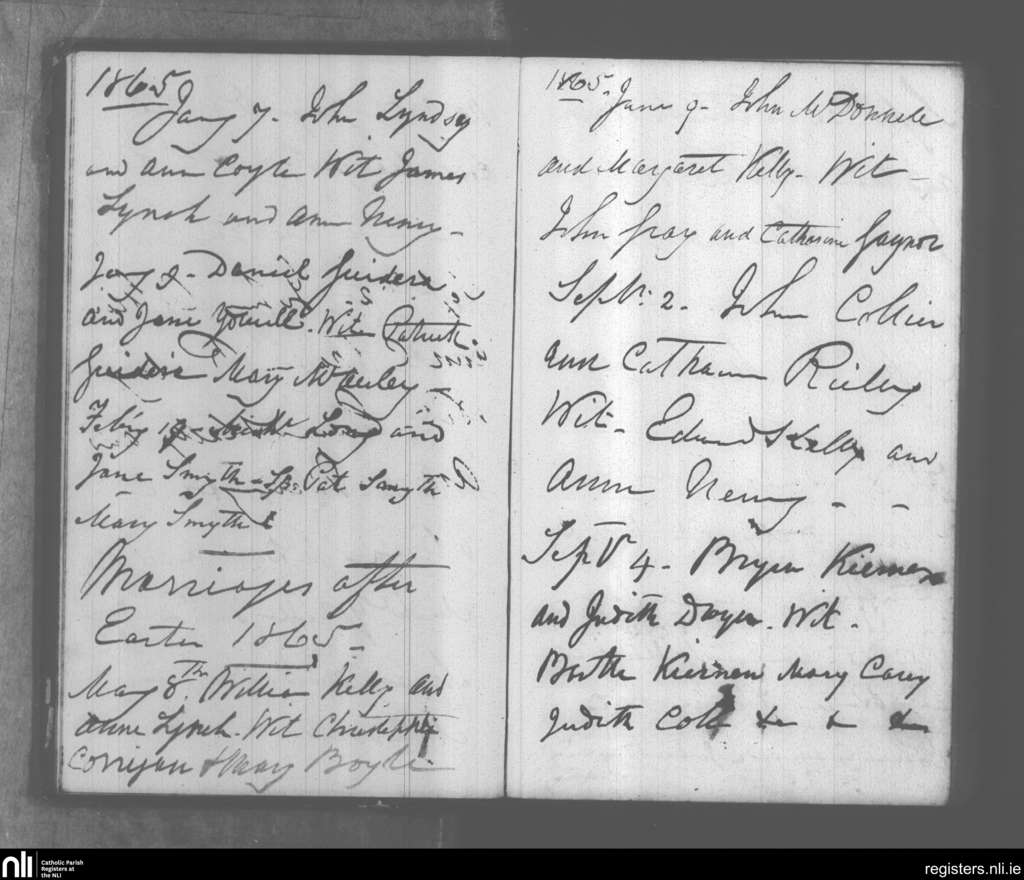 1865
Jany 7. John Lyndsey
and Ann Coyle Wit James
Lynch and Ann Neny -
Jany 9 - Daniel
and Jane Wit Patrick
Mary McAuley -
Feby 19 - Long and
Jane Smyth - Sp. Pat Smyth
Mary Smyth
Marriages after
Easter 1865 -
May 8th. William Kelly and
Anne Lynch. Wit Christopher
Corrigan & Mary Boyle
1865. June 9 - John McDonnele
and Margaret Kelly - Wit -
John Gray and Catharine Gaynor
Septr. 2. John Collier
and Catharine Rieley
Wit - Edward Kelly and
Ann Neny - -
Septr 4 - Bryan Kiernan
and Judith Dwyer. Wit.
Kiernen Mary Carey
Judith &c &c
nli
Catholic Parish
Registers at
the NLI
registers.nli.ie